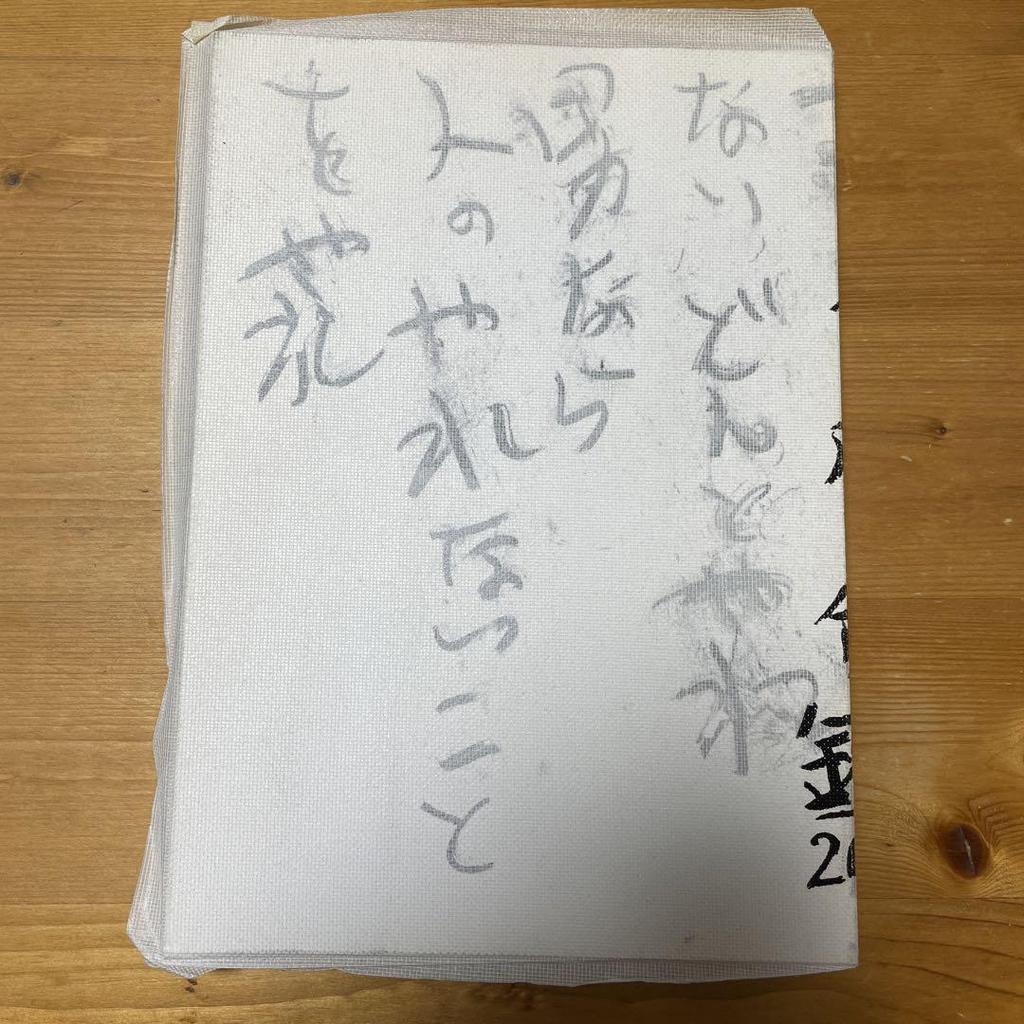 ないどんとやれ
男なら
人のやれないこと
をやれ